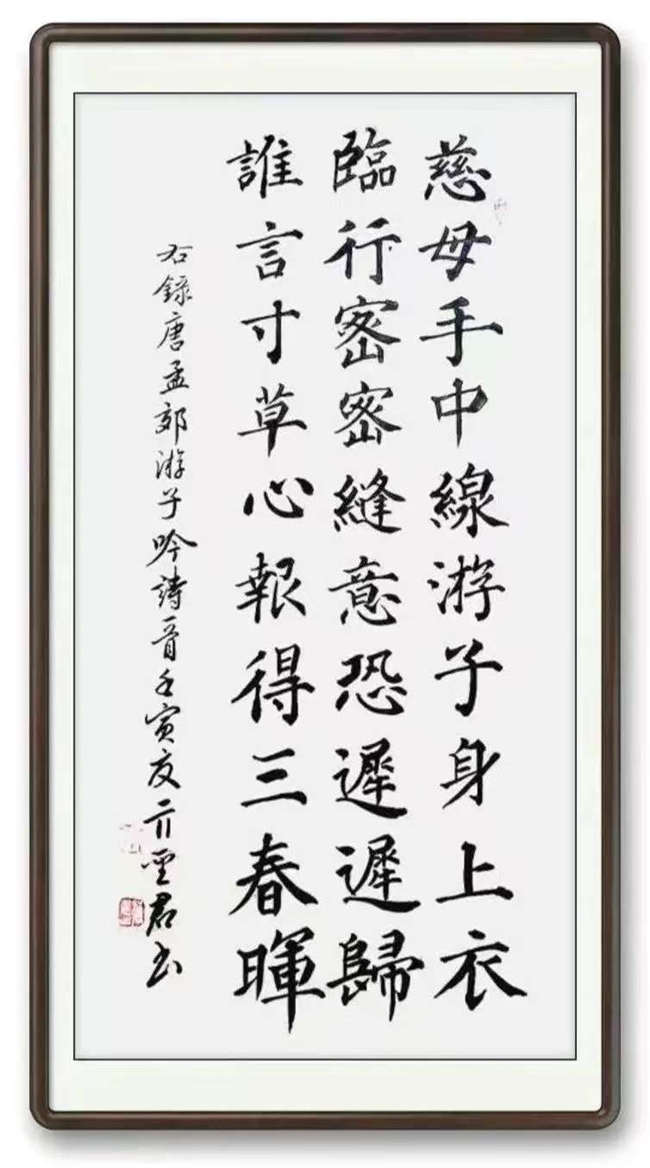 慈母手中線游子身上衣
臨行密密縫意恐遲遲歸
誰言寸草心報得三春暉
右錄唐孟郊游子吟詩一首壬寅夏亓雲君书